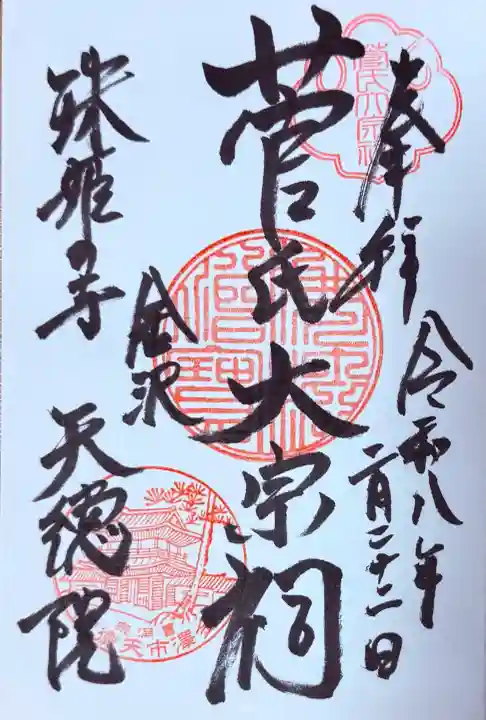 奉拝
令和八年
二月二十二日
菅氏大宗祠
佛法僧寳
金沢
珠姫の寺
天徳院